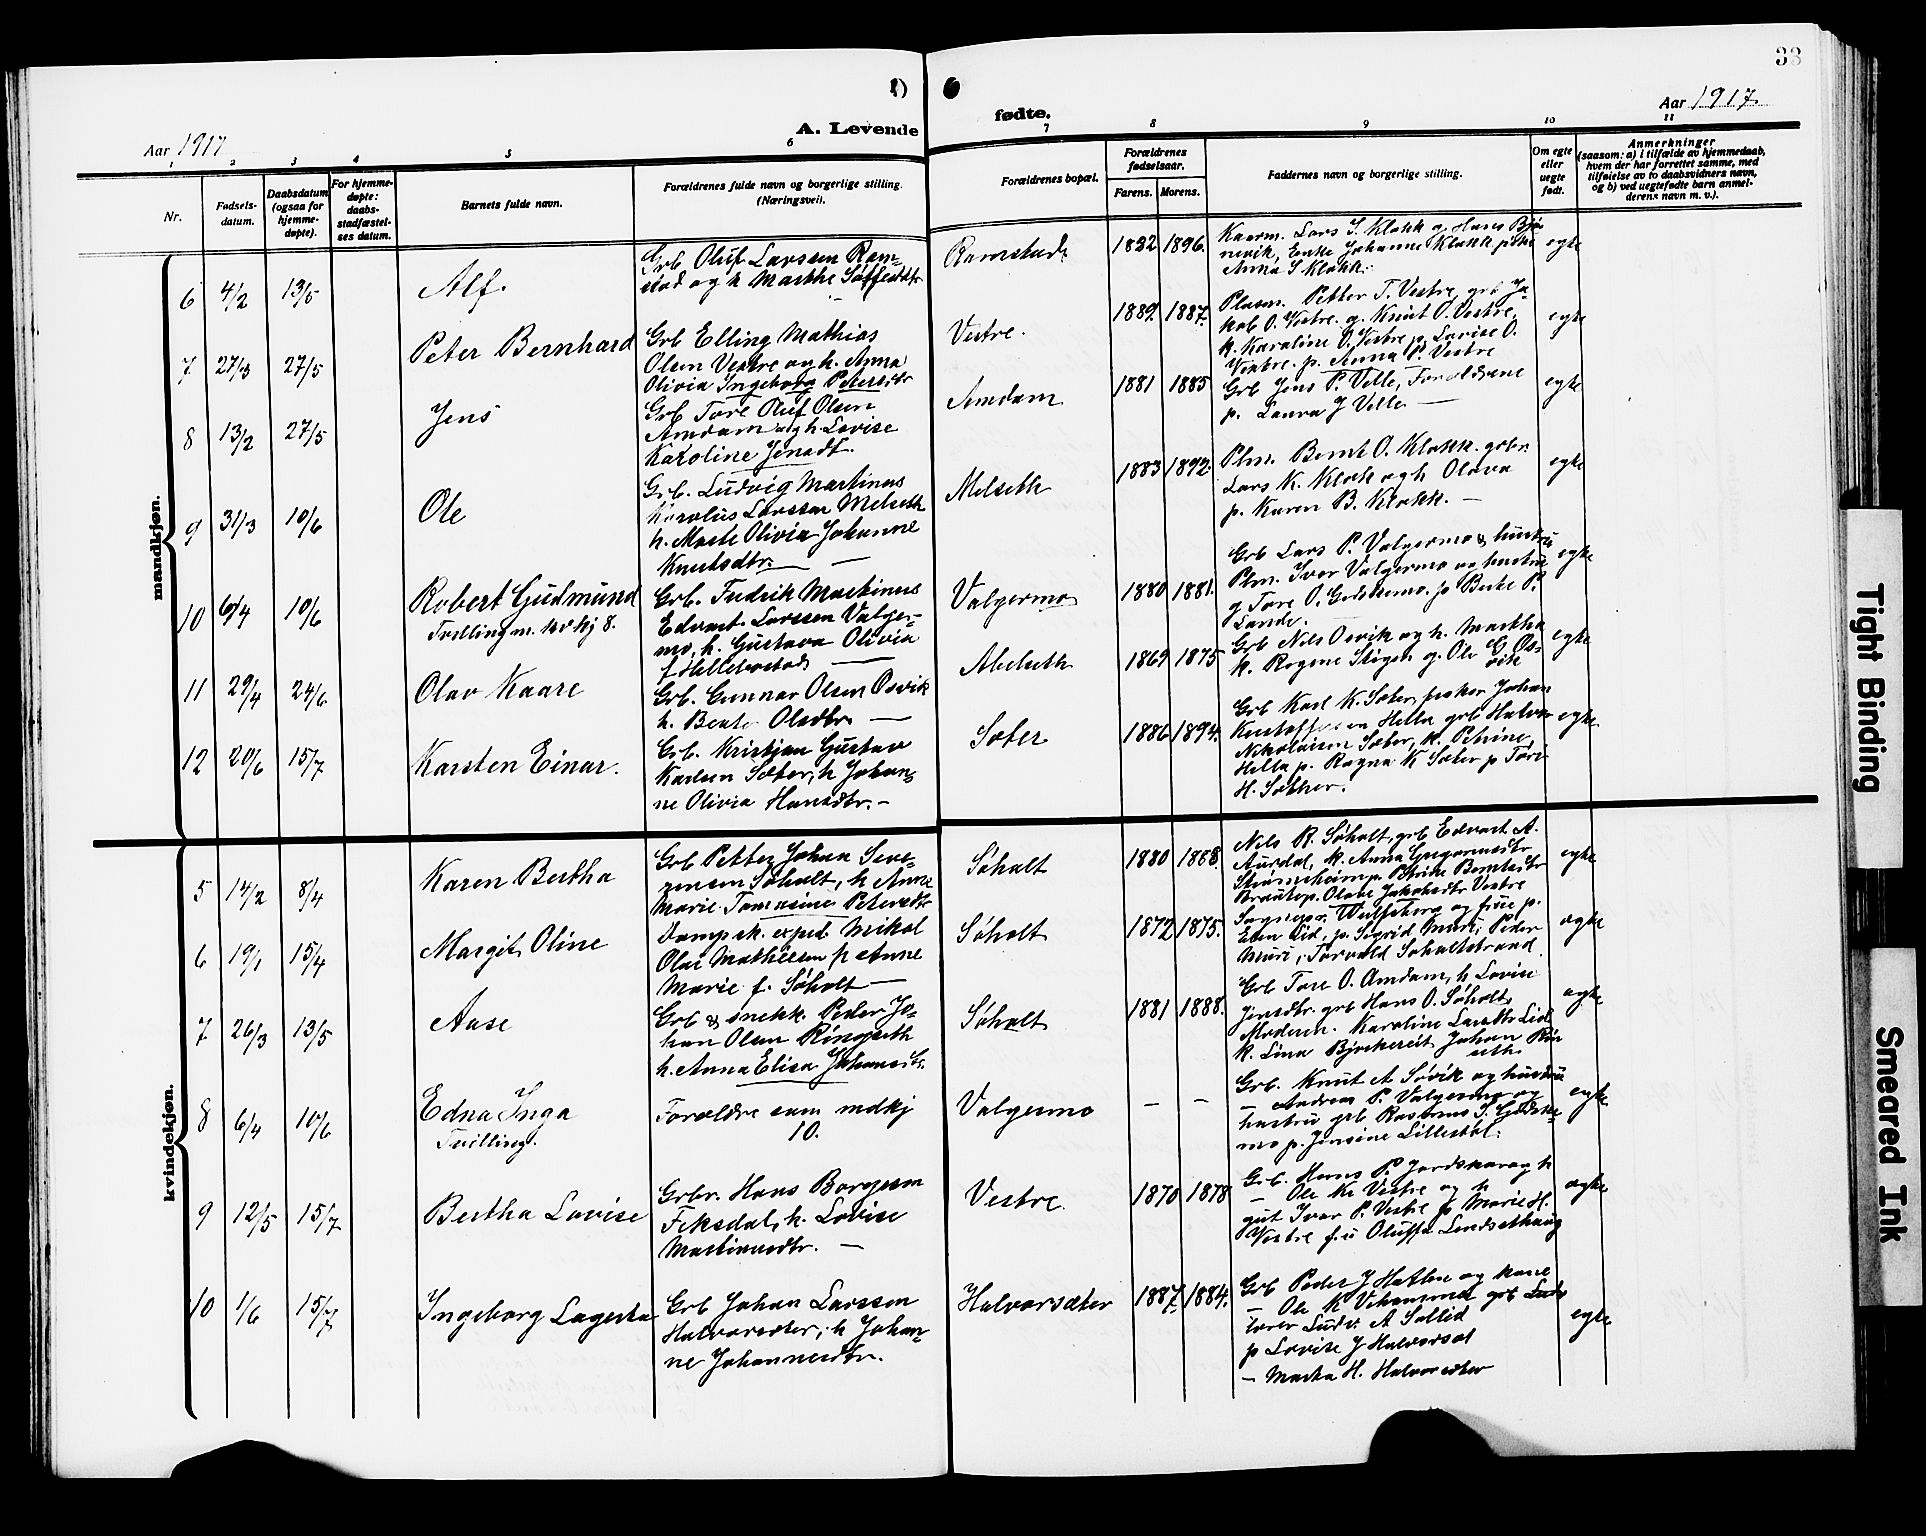 33
1)
Aar 1917
A. Levende fødte.
Aar 1917.
1 2 3 4 5 6 7 8 9 10 11
Nr.
Fødsels-
datum.
Daabsdatum
(ogsaa for
hjemme-
døpte).
For hjemme-
døpte:
daabs-
stadfæstel-
ses datum.
Barnets fulde navn.
Forældrenes fulde navn og borgerlige stilling.
(Næringsvei).
Forældrenes bopæl.
Forældrenes
fødselsaar.
Farens. Morens.
Faddernes navn og borgerlige stilling.
Om egte
eller
uegte
født.
Anmerkninger
(saasom: a) i tilfælde av hjemmedaab,
hvem der har forrettet samme, med
tilføielse av to daabsvidners navn,
og b) ved uegtefødte barn anmel-
derens navn m. v.).
mandkjøn.
6 4/2 13/5 Alf.
Grb Oluf Larssen Ram-
stad og h Marthe
Ramstad 1882 1896.
Kaarm. Lars I. Klokk og Hans Bjø
nevik, Enke Johanne Klokk pike
Anna S Klokk.
egte
7 27/3 27/5 Peter Bernhard
Grb Elling Mathias
Olsen Vestre og h. Anna
Olivia Ingeborg Petersdtr
Vestre. 1889. 1887.
Plasm. Petter T. Vestre, grb Ja-
kob O. Vestre. g. Knut O. Vestre,
k. Karoline O. Vestre p. Lovise O.
Vestre. p. Anna P. Vestre
egte
8 13/2 27/5 Jens
Grb Tore Oluf Olsen
Amdam og h Lovise
Karoline Jensdt.
Amdam 1881 1885
Grb Jens P. Velle, Forældrene
p. Laura J Velle —
egte
9 31/3 10/6 Ole
Grb. Ludvig Martinus
Karolus Larssen Melseth
h. Marte Olivia Johanne
Knutsdtr. —
Melseth 1883 1892.
Plm. Bernt O. Klokk. grbr.
Lars K. Klokk og h Olava
p. Karen B. Klokk. —
egte
10 6/4 10/6 Robert Gudmund
Tvilling m. kvkj 8.
Grb. Fredrik Martinus
Edvart Larssen Valger-
mo, h. Gustava Olivia
f. Hellebostad —
Valgermo 1880 1881.
Grb Lars P. Valgermo & hustru
Plm. Iver Valgermo og hustru
g Tore O. Gjedskemo. p Berte P.
Lande.
egte
11 29/4 24/6 Olav Kaare
Grb. Gunnar Olsen Osvik
h. Beate Olsdtr. —
Abelseth 1869 1875
Grb Nils Osvik og h. Martha
k. Rogne Stigen g. Ole G Os-
vik
egte
12 20/6 15/7 Karsten Einar.
Grb. Kristian Gustav
Karlsen Sæter, h Johan-
ne Olivia Hansdtr. —
Sæter 1886 1894.
Grb Karl K. Sæter, fisker Johan
Kristoffersen Hella grb Halvor
Nikolaisen Sæter, k. Petrine
Hella p. Ragna K Sæter p Tore
H. Sæther.
egte
kvindekjøn.
5 14/2 8/4 Karen Bertha
Grb Petter Johan Seve-
rinsen Søholt, h Anne
Marie Tomasine Petersdtr
Søholt 1880 1888.
Nils R. Søholt, grb Edvart A.
Aurdal, k. Anna Gregoriusdtr
p. Petrike Berntsdtr
p. Olave Jakobsdtr Vestre
egte
6 19/1 15/4 Margit Oline
Dampsk. exped. Nikol
Olai Mathiesen h Anne
Marie f. Søholt —
Søholt 1872 1875.
Wulfsberg og frue p.
Lid, p. Sigrid Muri, Peder
Muri, Torvald Søholtstrand
egte
7 26/3 13/5 Aase
Grb & snekk. Peder Jo-
han Olsen Ringseth
h. Anna Elisa Johansdtr.
Søholt 1881 1888.
Grb Tore O. Amdam, h Lovise
Jensdtr. grb Hans O. Søholt
Moderen. Karoline Larsdtr Lid
k. Lina Bjorkereit Johan Rin
seth
egte
8 6/4 10/6 Edna Inga
Tvilling.
Forældre som mdkj
10.
Valgermo — —
Grb. Knut A Søvik og hustru
— Andreas P. Valgermo og
hustru grb Rasmus I. Gjedske-
mo p. Jensine Lillestøl.
egte
9 12/5 15/7 Bertha Lovise
Grbr. Hans Borgesen
Fiksdal, h. Lovise
Martinusdtr. —
Vestre 1870 1878
Grb. Hans P. og h
— Ole K. Vestre og h
gut Ivar P. Vestre p Marie H.
Vestre fru Oluffa Landsethaug
egte
10 1/6 15/7 Ingeborg Lagerta
Grb Johan Larssen
Halvorsæter, h Johan-
ne Johannesdtr.
Halvorsæter 1887. 1884.
Grb Peder J Hatlen og kone
— Ole K grb
lærer Ludv. A Sollid
p Lovise J Halvorsæt
— Marta H. Halvorsæter
egte
Tight Binding
Smeared Ink